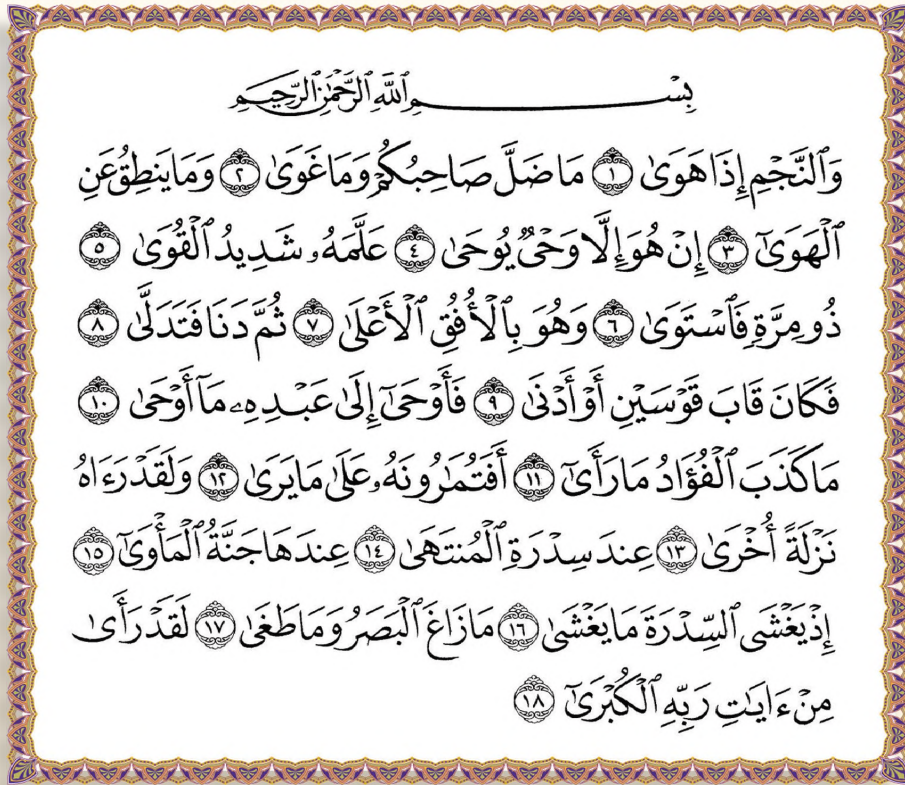 بِسْمِ ٱللَّهِ ٱلرَّحْمَٰنِ ٱلرَّحِيمِ
وَٱلنَّجْمِ إِذَا هَوَىٰ ١ مَا ضَلَّ صَاحِبُكُمْ وَمَا غَوَىٰ ٢ وَمَا يَنطِقُ عَنِ
ٱلْهَوَىٰٓ ٣ إِنْ هُوَ إِلَّا وَحْىٌ يُوحَىٰ ٤ عَلَّمَهُۥ شَدِيدُ ٱلْقُوَىٰ ٥
ذُو مِرَّةٍ فَٱسْتَوَىٰ ٦ وَهُوَ بِٱلْأُفُقِ ٱلْأَعْلَىٰ ٧ ثُمَّ دَنَا فَتَدَلَّىٰ ٨
فَكَانَ قَابَ قَوْسَيْنِ أَوْ أَدْنَىٰ ٩ فَأَوْحَىٰٓ إِلَىٰ عَبْدِهِۦ مَآ أَوْحَىٰ ١٠
مَا كَذَبَ ٱلْفُؤَادُ مَا رَأَىٰٓ ١١ أَفَتُمَٰرُونَهُۥ عَلَىٰ مَا يَرَىٰ ١٢ وَلَقَدْ رَءَاهُ
نَزْلَةً أُخْرَىٰ ١٣ عِندَ سِدْرَةِ ٱلْمُنتَهَىٰ ١٤ عِندَهَا جَنَّةُ ٱلْمَأْوَىٰٓ ١٥
إِذْ يَغْشَى ٱلسِّدْرَةَ مَا يَغْشَىٰ ١٦ مَا زَاغَ ٱلْبَصَرُ وَمَا طَغَىٰ ١٧ لَقَدْ رَأَىٰ
مِنْ ءَايَٰتِ رَبِّهِ ٱلْكُبْرَىٰٓ ١٨